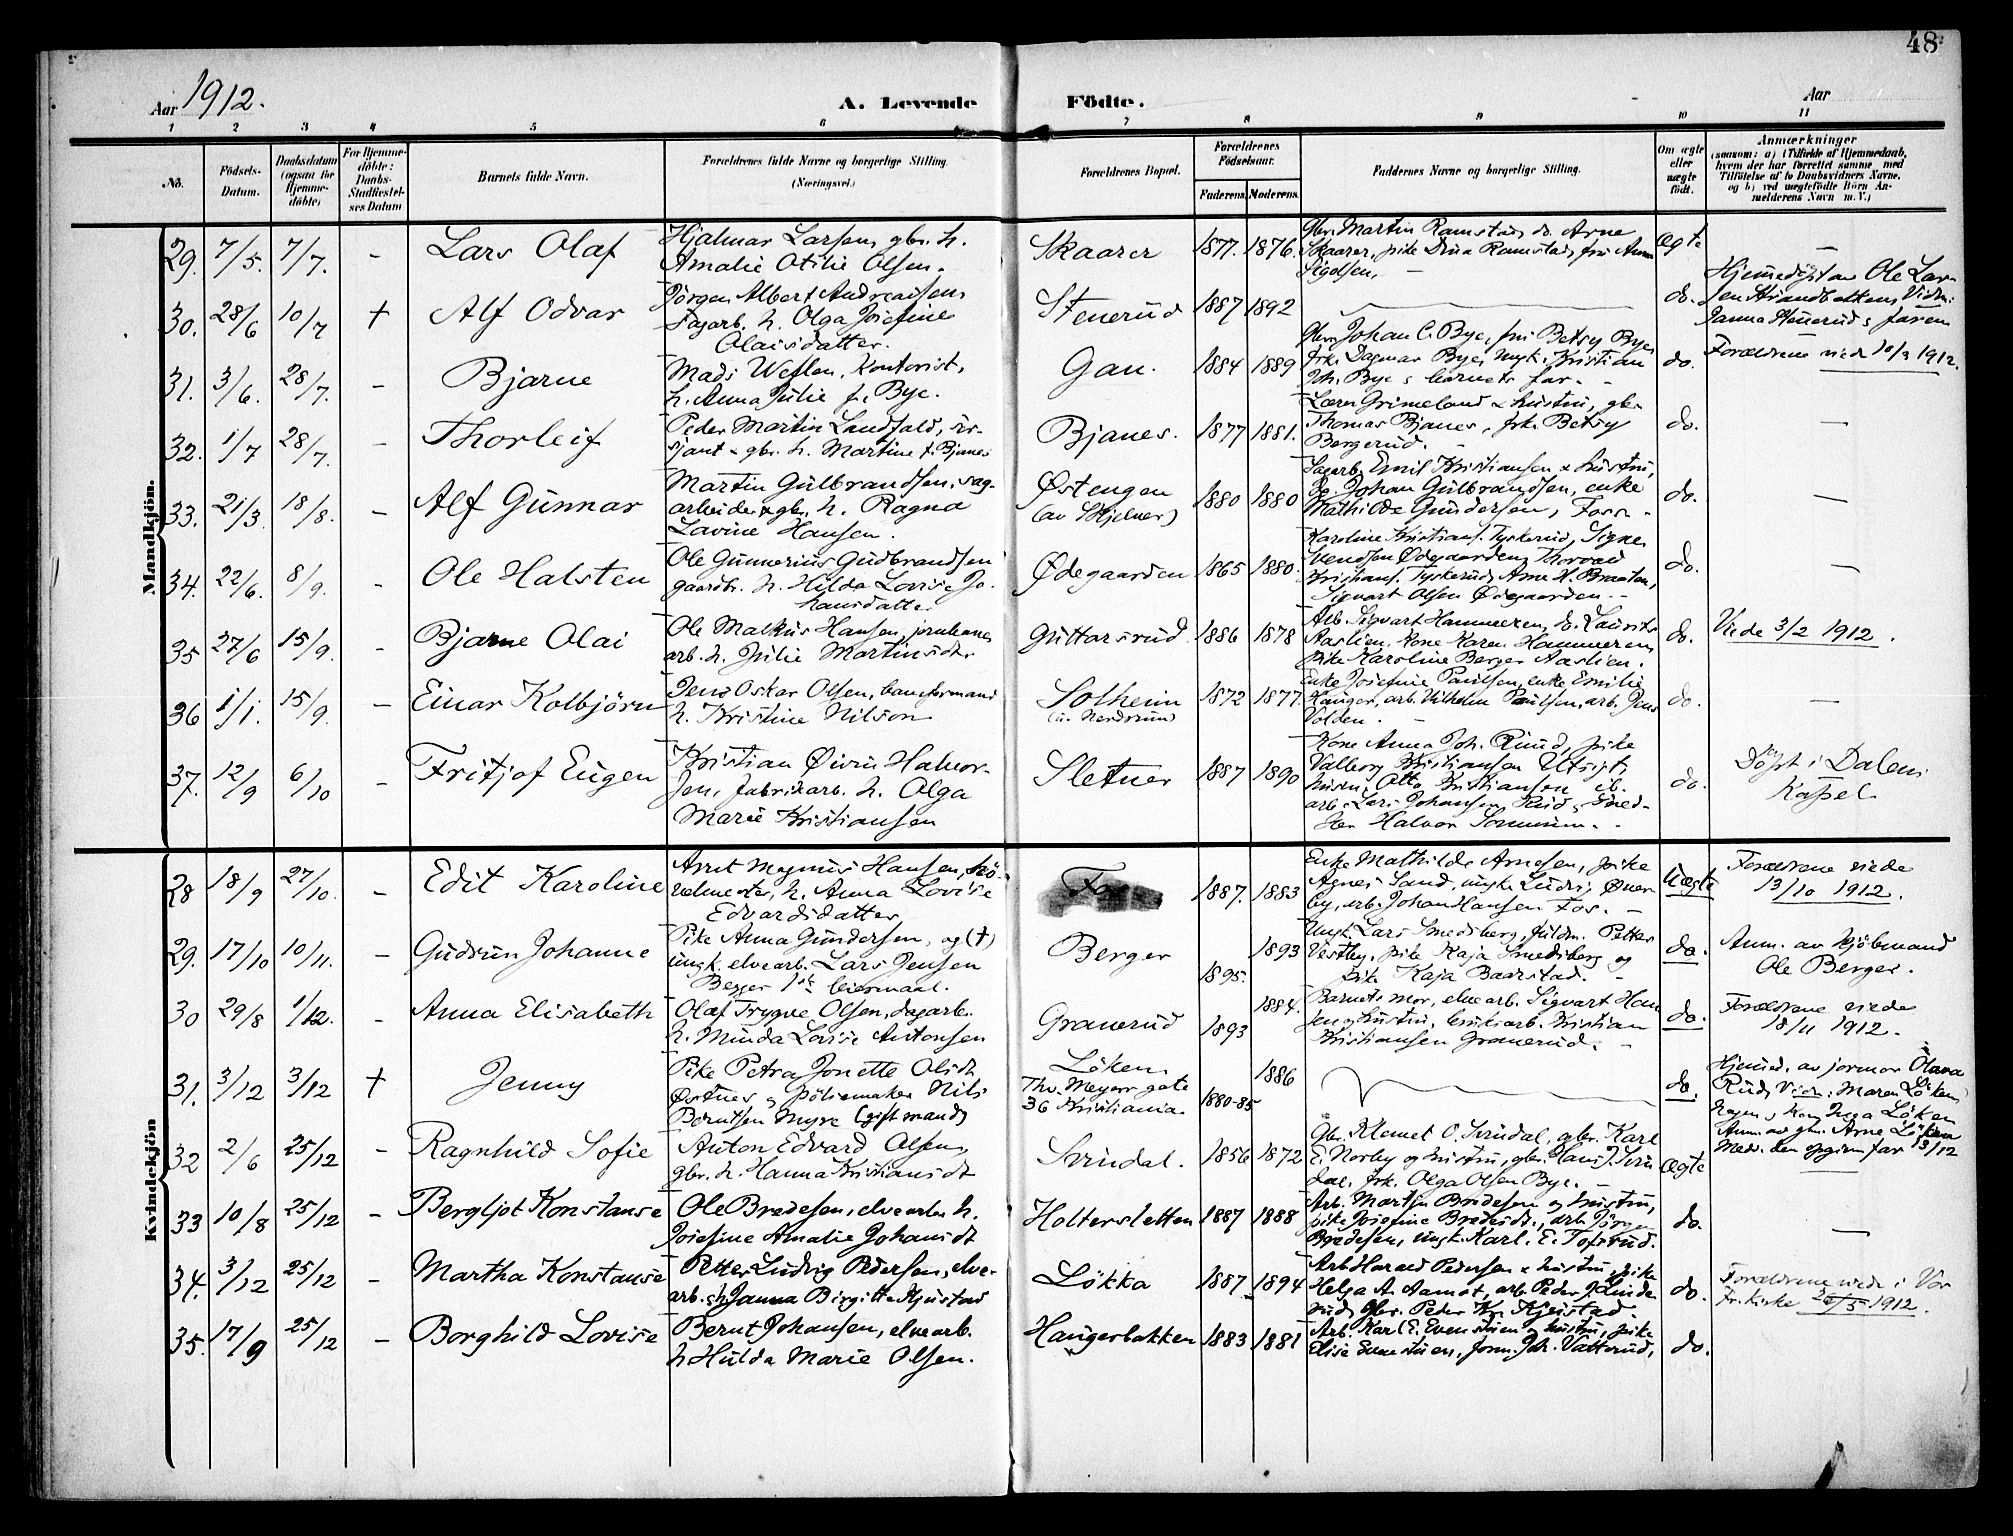 48
Aar 1912.
A. Levende Födte.
Aar
1 2 3 4 5 6 7 8 9 10 11
No.
Födsels-
Datum.
Daabsdatum
(ogsaa for
Hjemme-
döbte)
For Hjemme-
döbte:
Daabs-
Stadfæstel-
ses Datum
Barnets fulde Navn.
Forældrenes fulde Navne og borgerlige Stilling.
(Næringsvei.)
Forældrenes Bopæl.
Forældrenes
Födselsaar.
Faderens. Moderens.
Faddernes Navne og borgerlige Stilling.
Om ægte
eller
uægte
födt.
Anmærkninger
(saasom: a) i Tilfælde af Hjemmedaab,
hvem der har forrettet samme med
Tilföielse af to Daabsvidners Navne,
og b) ved uægtefödte Börn An-
melderens Navn m. V.)
Mandkjön.
29. 7/5. 7/7. - Lars Olaf
Hjalmar Larsen, gbr. h.
Amalie Otilie Olsen.
Skaarer 1877. 1876.
Gbr. Martin Ramstad, do. Arne
Skaarer, pike Dina Ramstad, fru Anna
Sigolsen, -
Ægte -
30. 28/6 10/7 + Alf Odvar
Jörgen Albert Andreassen
Sagarb. h. Olga Josefine
Olaisdatter.
Stenerud 1887 1892
do.
Hjemmedöpt av Ole Lar-
sen Strandbakken, Vidn:
Janna Stenerud & faren
31. 3/6. 28/7. - Bjarne
Mads Weflen, Kontorist,
h. Anna Julie f. Bye.
Gan. 1884 1889
Gbr. Johan C. Bye, fru Betsy Bye,
frk. Dagmar Bye, ungk. Kristian
Joh. Bye & barnets far. -
do.
Forældrene viede 10/3 1912.
32. 1/7 28/7. - Thorleif
Peder Martin Landfald, ser-
sjant & gbr. h. Martine f. Bjanes
Bjanes. 1877 1881.
Lærer Grimeland & hustru, gbr.
Thomas Bjanes, frk. Betsy
Bergerud. -
do. -
33. 21/3. 18/8. - Alf Gunnar
Martin Gulbrandsen, sag-
arbeider & gbr. h. Ragna
Lavine Hansen.
Østengen
(av Skjelver)
1880 1880
Sagarb. Emil Kristiansen & hustru,
do. Johan Gulbrandsen, enke
Mathilde Gundersen, Foss. -
do. -
34. 22/6. 8/9. - Ole Halsten
Ole Gunnerius Gudbrandsen
gaardbr. h. Hilda Lovise Jo-
hansdatter
Ødegaarden 1865 1880.
Karoline Kristians. Tyskerud, Signe
Svendsen Ødegaarden, Thorvald
Kristians. Tyskerud, Arne H. Braaten,
Sigvart Olsen Ødegaarden. -
do. -
35 27/6 15/9. - Bjarne Olai
Ole Malkus Hansen, jernbane
arb. h. Julie Martinsdt.
Guttarsrud 1886 1878
Arb. Sigvart Hammeren, do. Laurits
Aaslien, kone Karen Hammeren,
pike Karoline Berger Aaslien.
do. Viede 3/2 1912.
36 1/1. 15/9. - Einar Kolbjörn
Jens Oskar Olsen, baneformand
h. Kristine Nilson
Solheim
(u. Nerdrum)
1872 1877.
Enke Josefine Paulsen, enke Emilie
Hauger, arb. Vilhelm Paulsen, arb. Jens
Volden. -
do. -
37. 12/9 6/10 - Fritjof Eugen
Kristian Øivin Halvor-
sen, fabrikarb. h. Olga
Marie Kristiansen
Sletner 1887 1890
Kone Anna Joh. Ruud, pike
Valborg Kristiansen
Otto Kristiansen
arb. Lars Johansen Ruud,
Halvor
do.
Döpt i Dalen
Kapel
Kvindekjön
28 18/9 27/10. - Edit Karoline
Arnt Magnus Hansen, rö-
relmester, h. Anna Lovise
Edvardsdatter
Fos 1887. 1883
Enke Mathilde Arnesen, pike
Agnes Sand, ungk. Ludv. Øver-
by, arb. Johan Hansen Fos. -
Uægte
Forældrene viede
13/10 1912.
29. 17/10 10/11. - Gudrun Johanne
Pike Anna Gundersen, og (+)
ungk. elvearb. Lars Jensen
Berger 1ste leiermaal.
Berger 1893
1895.
Ungk. Lars Smedsberg, fuldm. Petter
Vestby, pike Kaja Smedsberg og
pike Kaja Baarstad.
do.
Anm. av kjöbmand
Ole Berger.
30 29/8 1/12. - Anna Elisabeth
Olaf Trygve Olsen, dagarb.
h. Minda Lovise Antonsen
Granerud 1884.
1893
Barnets mor, elvearb. Sigvart Han-
sen & hustru, bruksarb. Kristian
Kristiansen Granerud. -
do.
Forældrene viede
18/11 1912.
31. 3/12 3/12 + Jenny
Pike Petra Jonette Olsdt.
Østnes og pölsemaker Nils
Berntsen Myre (gift mand)
Löken
Thv. Meyers gate
36 Kristiania
1886
1880-85
do.
Hjemd. av jormor Olava
Ruud, Vidn: Maren Löken,
Hagen & kone Inga Löken
Anm. av gbr. Arne Löken
Mod. den opgivne far 13/12
32 2/6 25/12 - Ragnhild Sofie
Anton Edvard Olsen,
gbr. h. Hanna Kristiansdt
Svindal. 1856 1872
Gbr. Klemet O. Svindal, gbr. Karl
E. Norby og hustru, gbr. Hans J. Svin-
dal, frk. Olga Olsen Bye. -
Ægte
33 10/8 25/12 - Bergljot Konstanse
Ole Bredesen, elvearb. h.
Josefine Amalie Johansdt
Holtersletten 1887 1888
Arb. Martin Bredesen og hustru,
pike Josefine Bredesdt., arb. Jörgen
Bredesen, ungk. Karl. E. Toftrud.
do. -
34. 3/12 25/12 - Martha Konstanse
Petter Ludvig Pedersen, elve-
arb. & h. Janna Birgitte Kjustad
Lökka 1887 1894
Arb Harald Pedersen & hustru, pike
Helga A. Aamot, arb. Peder J. Linde-
rud, gbr. Peder Kr. Kjustad.
do.
Forældrene viede i Vor
Fr. Kirke 26/5 1912.
35. 17/9 25/12 - Borghild Lovise
Bernt Johansen, elvearb.
h Hulda Marie Olsen.
Haugerbakken 1883 1881
Arb. Karl E. Evenstuen & hustru, pike
Elise Evenstuen, Joh. Vatterud,
do.